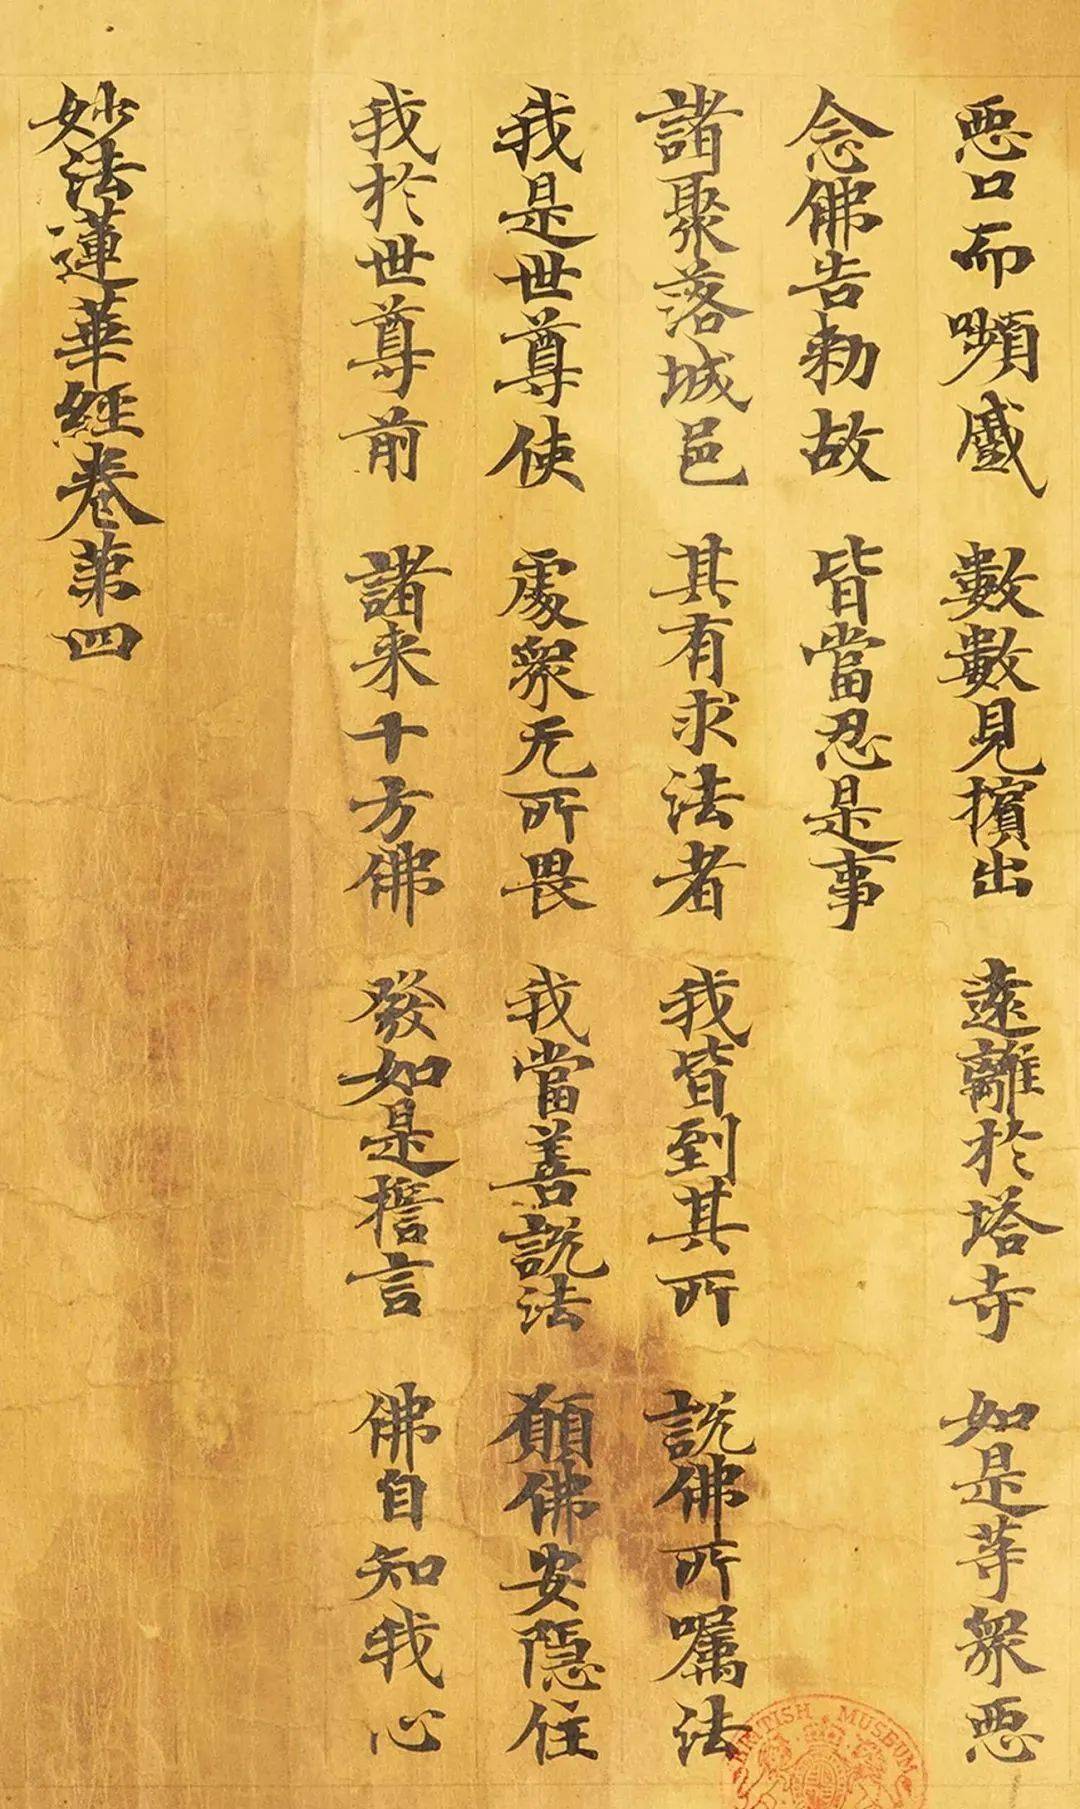 惡口而嚬蹙 數數見擯出 遠離於塔寺 如是等衆惡
念佛告勑故 皆當忍是事
諸聚落城邑 其有求法者 我皆到其所 說佛所囑法
我是世尊使 處衆无所畏 我當善說法 願佛安隱住
我於世尊前 諸来十方佛 發如是誓言 佛自知我心
妙法蓮華經卷第四
BRITISH MUSEUM